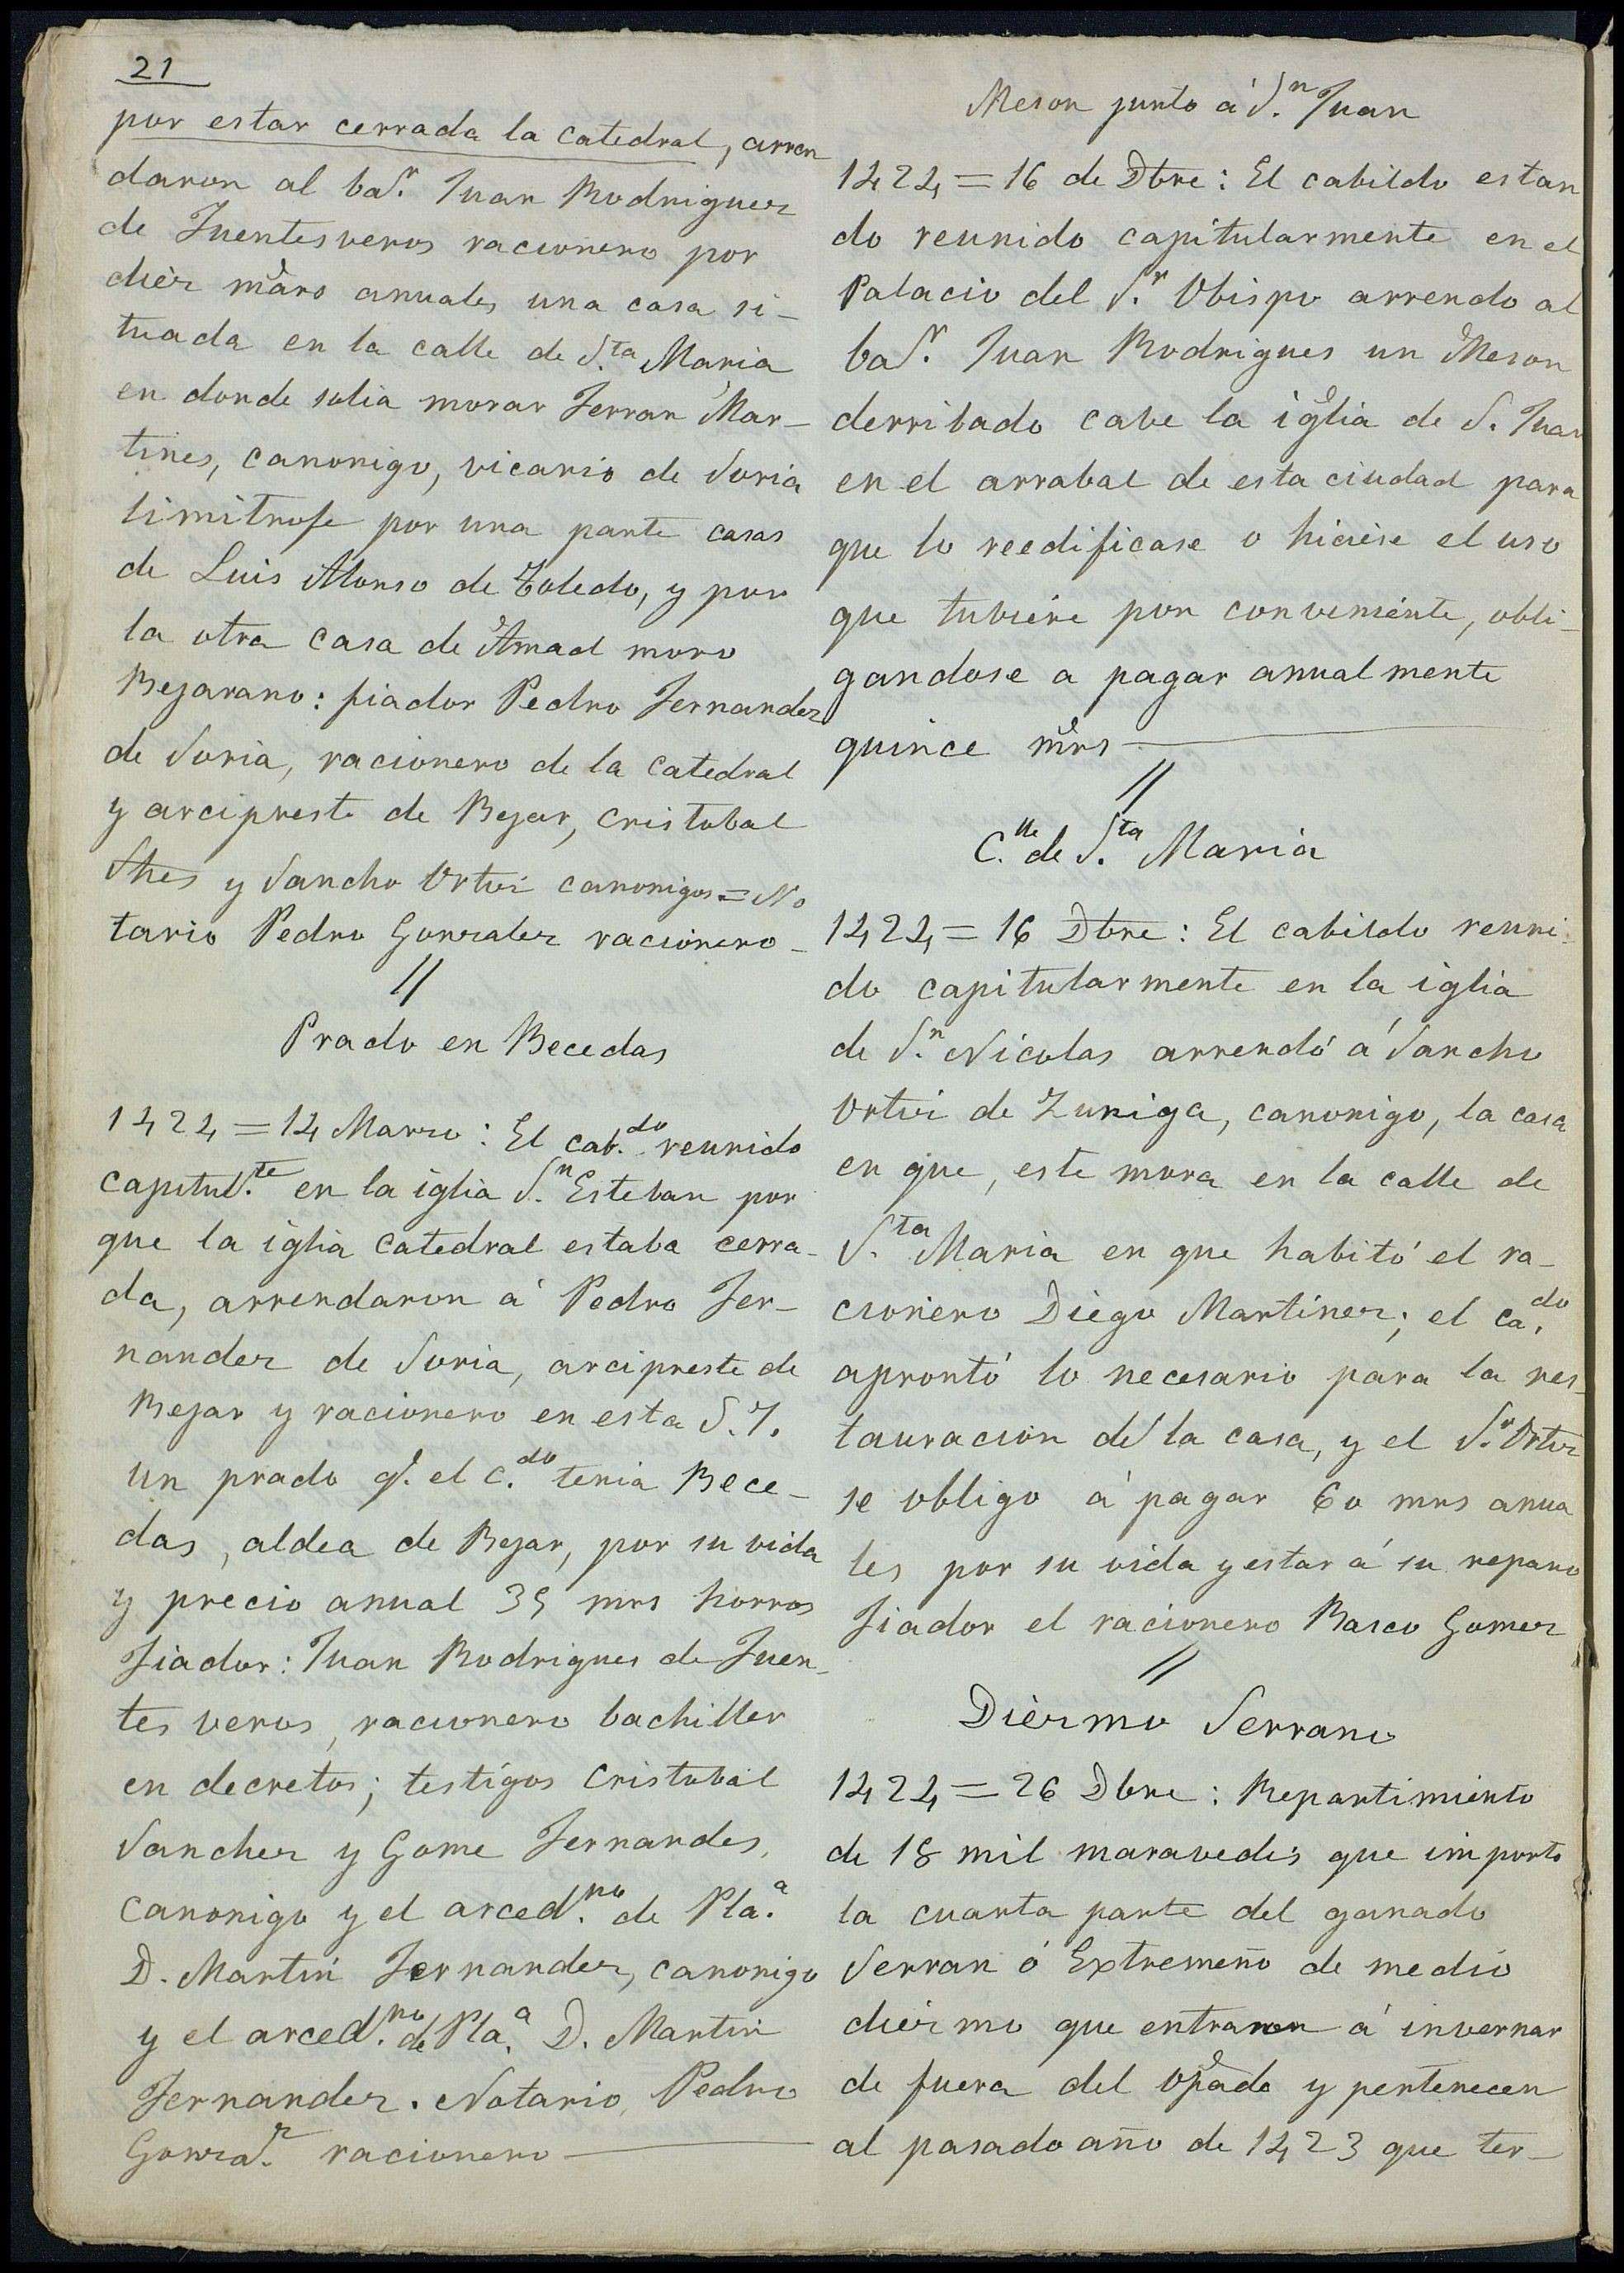 21
por estar cerrada la catedral, arren
daron al baʳ. Juan Rodriguez
de Fuentesveros racionero por
dièz mãrs anuales una casa si-
tuada en la calle de S.ta Maria
en donde solia morar Ferran Mar-
tines, canonigo, vicario de Soria
limitrofe por una parte casas
de Luis Alonso de Toledo, y por
la otra casa de Amad moro
Bejarano: fiador Pedro Fernandez
de Soria, racionero de la catedral
y arcipreste de Bejar, Cristobal
Shes y Sancho Ortiz canonigos = No
tario Pedro Gonzalez racionero-
//
Prado en Becedas
1424 = 14 Marzo: El cab.do reunido
capitul.te en la iglia S.n Esteban por
que la iglia catedral estaba cerra-
da, arrendaron á Pedro Fer-
nandez de Soria, arcipreste de
Bejar y racionero en esta S. I.
un prado q. el c.do tenia Bece-
das, aldea de Bejar, por su vida
y precio anual 35 mrs horros
Fiador: Juan Rodrigues de Fuen-
tes veros, racionero bachiller
en decretos; testigos Cristobal
Sanchez y Gome Fernandes,
canonigo y el arced.no de Pla.a
D. Martin Fernandez, canonigo
y el arced.no de Pla.a D. Martin
Fernandez. Notario, Pedro
Gonza.z racionero —
Meson junto á S.n Juan
1424 = 16 de Dbre: El cabildo estan
do reunido capitularmente en el
Palacio del S.r Obispo arrendo al
baʳ. Juan Rodrigues un Meson
derribado cabe la iglia de S. Juan
en el arrabal de esta ciudad para
que lo reedificase o hiciese el uso
que tubiere por conveniente, obli-
gandose a pagar anualmente
quince mrs —
//
C.lle de S.ta Maria
1424 = 16 Dbre: El cabildo reuni-
do capitularmente en la iglia
de S.n Nicolas arrendó á Sancho
Ortiz de Zuniga, canonigo, la casa
en que, este mora en la calle de
S.ta Maria en que habitó el ra-
cionero Diego Martinez; el ca.do
aprontó lo necesario para la res-
tauracion de la casa, y el S.r Ortiz
se obligo á pagar 60 mrs anua
les por su vida y estar á su reparo
Fiador el racionero Basco Gomez
//
Diezmo Serrano
1424 = 26 Dbre: Repartimiento
de 18 mil maravedis que importo
la cuarta parte del ganado
Serran ó Extremeño de medio
diezmo que entraron á invernar
de fuera del Opado y pertenecen
al pasado año de 1423 que ter-